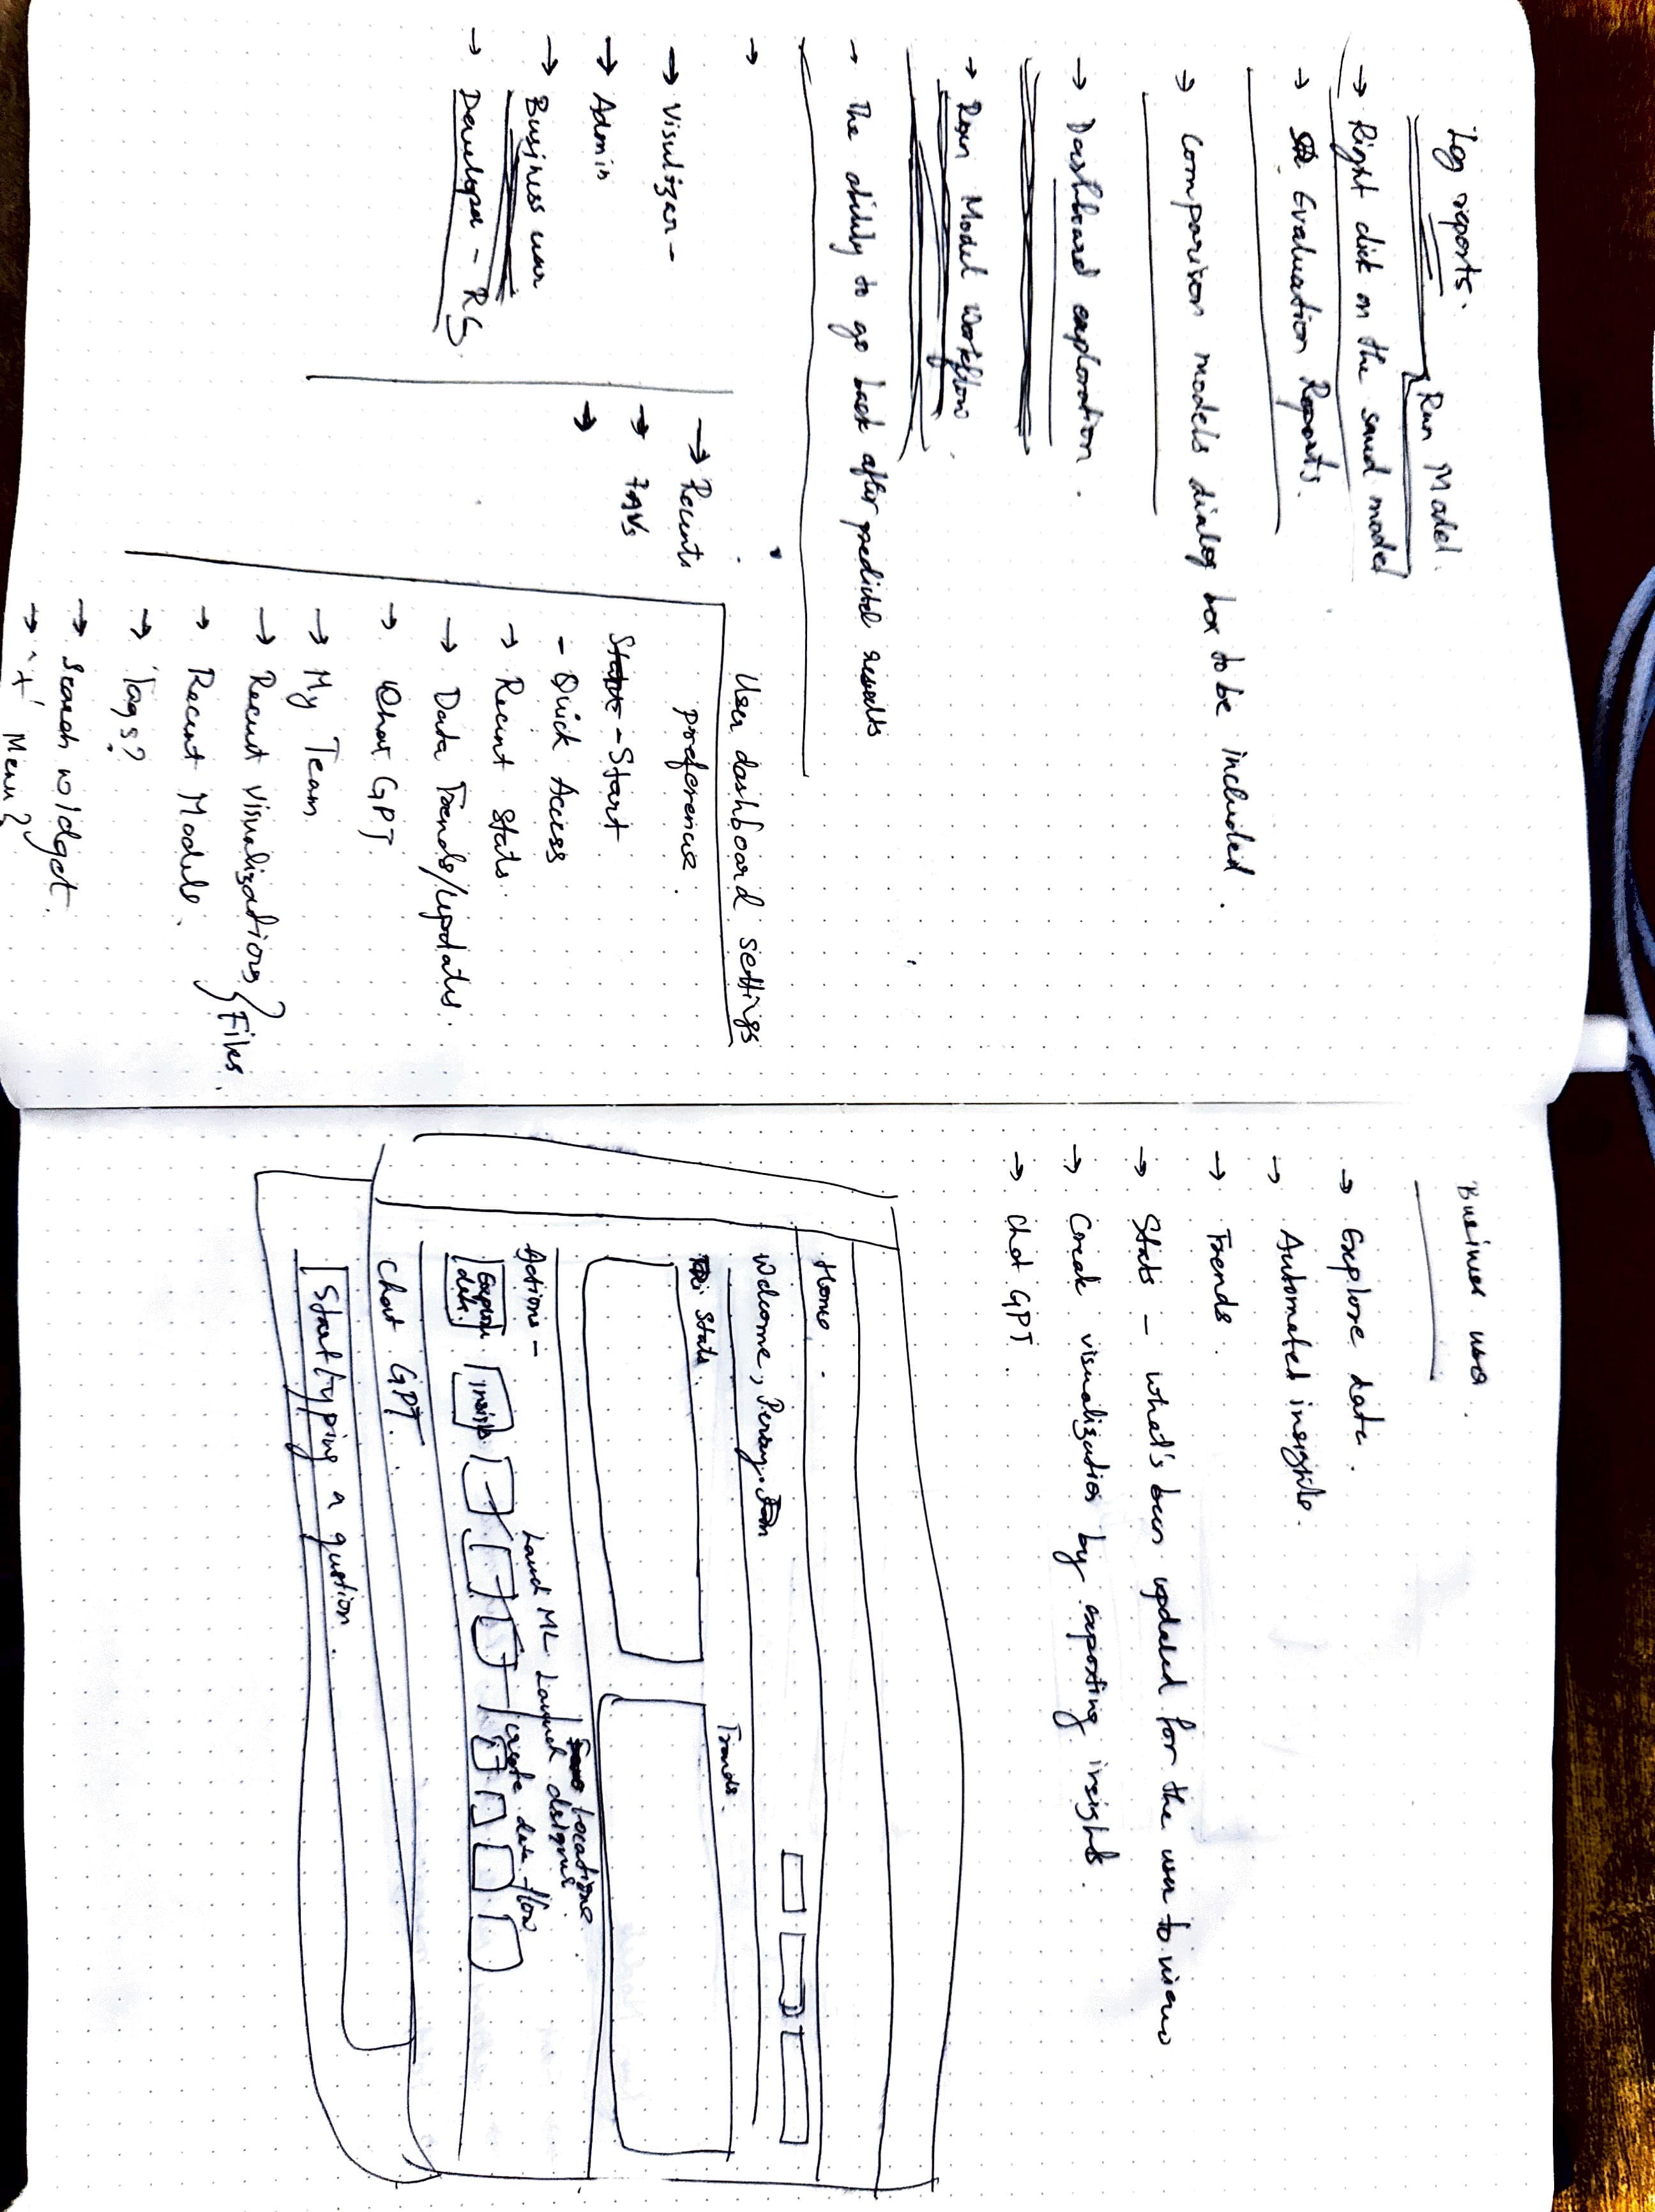 Log reports.
Run Model.
→ Right click on the saved model
→ Evaluation Reports.
→ Comparison models dialog box to be included.
→ Dashboard exploration.
→ Run Model Workflow.
→ The ability to go back after predicted results
→
→ Visulizer -
→ Admin
→ Business user
→ Developer - RG.
→ Recents
→ FAVs
→
User dashboard settings
preference.
- Start
- Quick Access
→ Recent Stats.
→ Data Trends/updates.
→ Chat GPT
→ My Team
→ Recent visualizations
→ Recent Models.
} Files.
→ Tags?
→ Search widget.
→ '+' Menu?
Business user.
→ Explore data.
→ Automated insights.
→ Trends.
→ Stats - what's been updated for the user to view
→ Create visualization by exporting insights.
→ Chat GPT.
Home.
Welcome,
Stats.
Trends.
Locations.
Actions -
Launch ML
Launch designer
create data flow
Explore data
insights
Chat GPT.
Start typing a question.